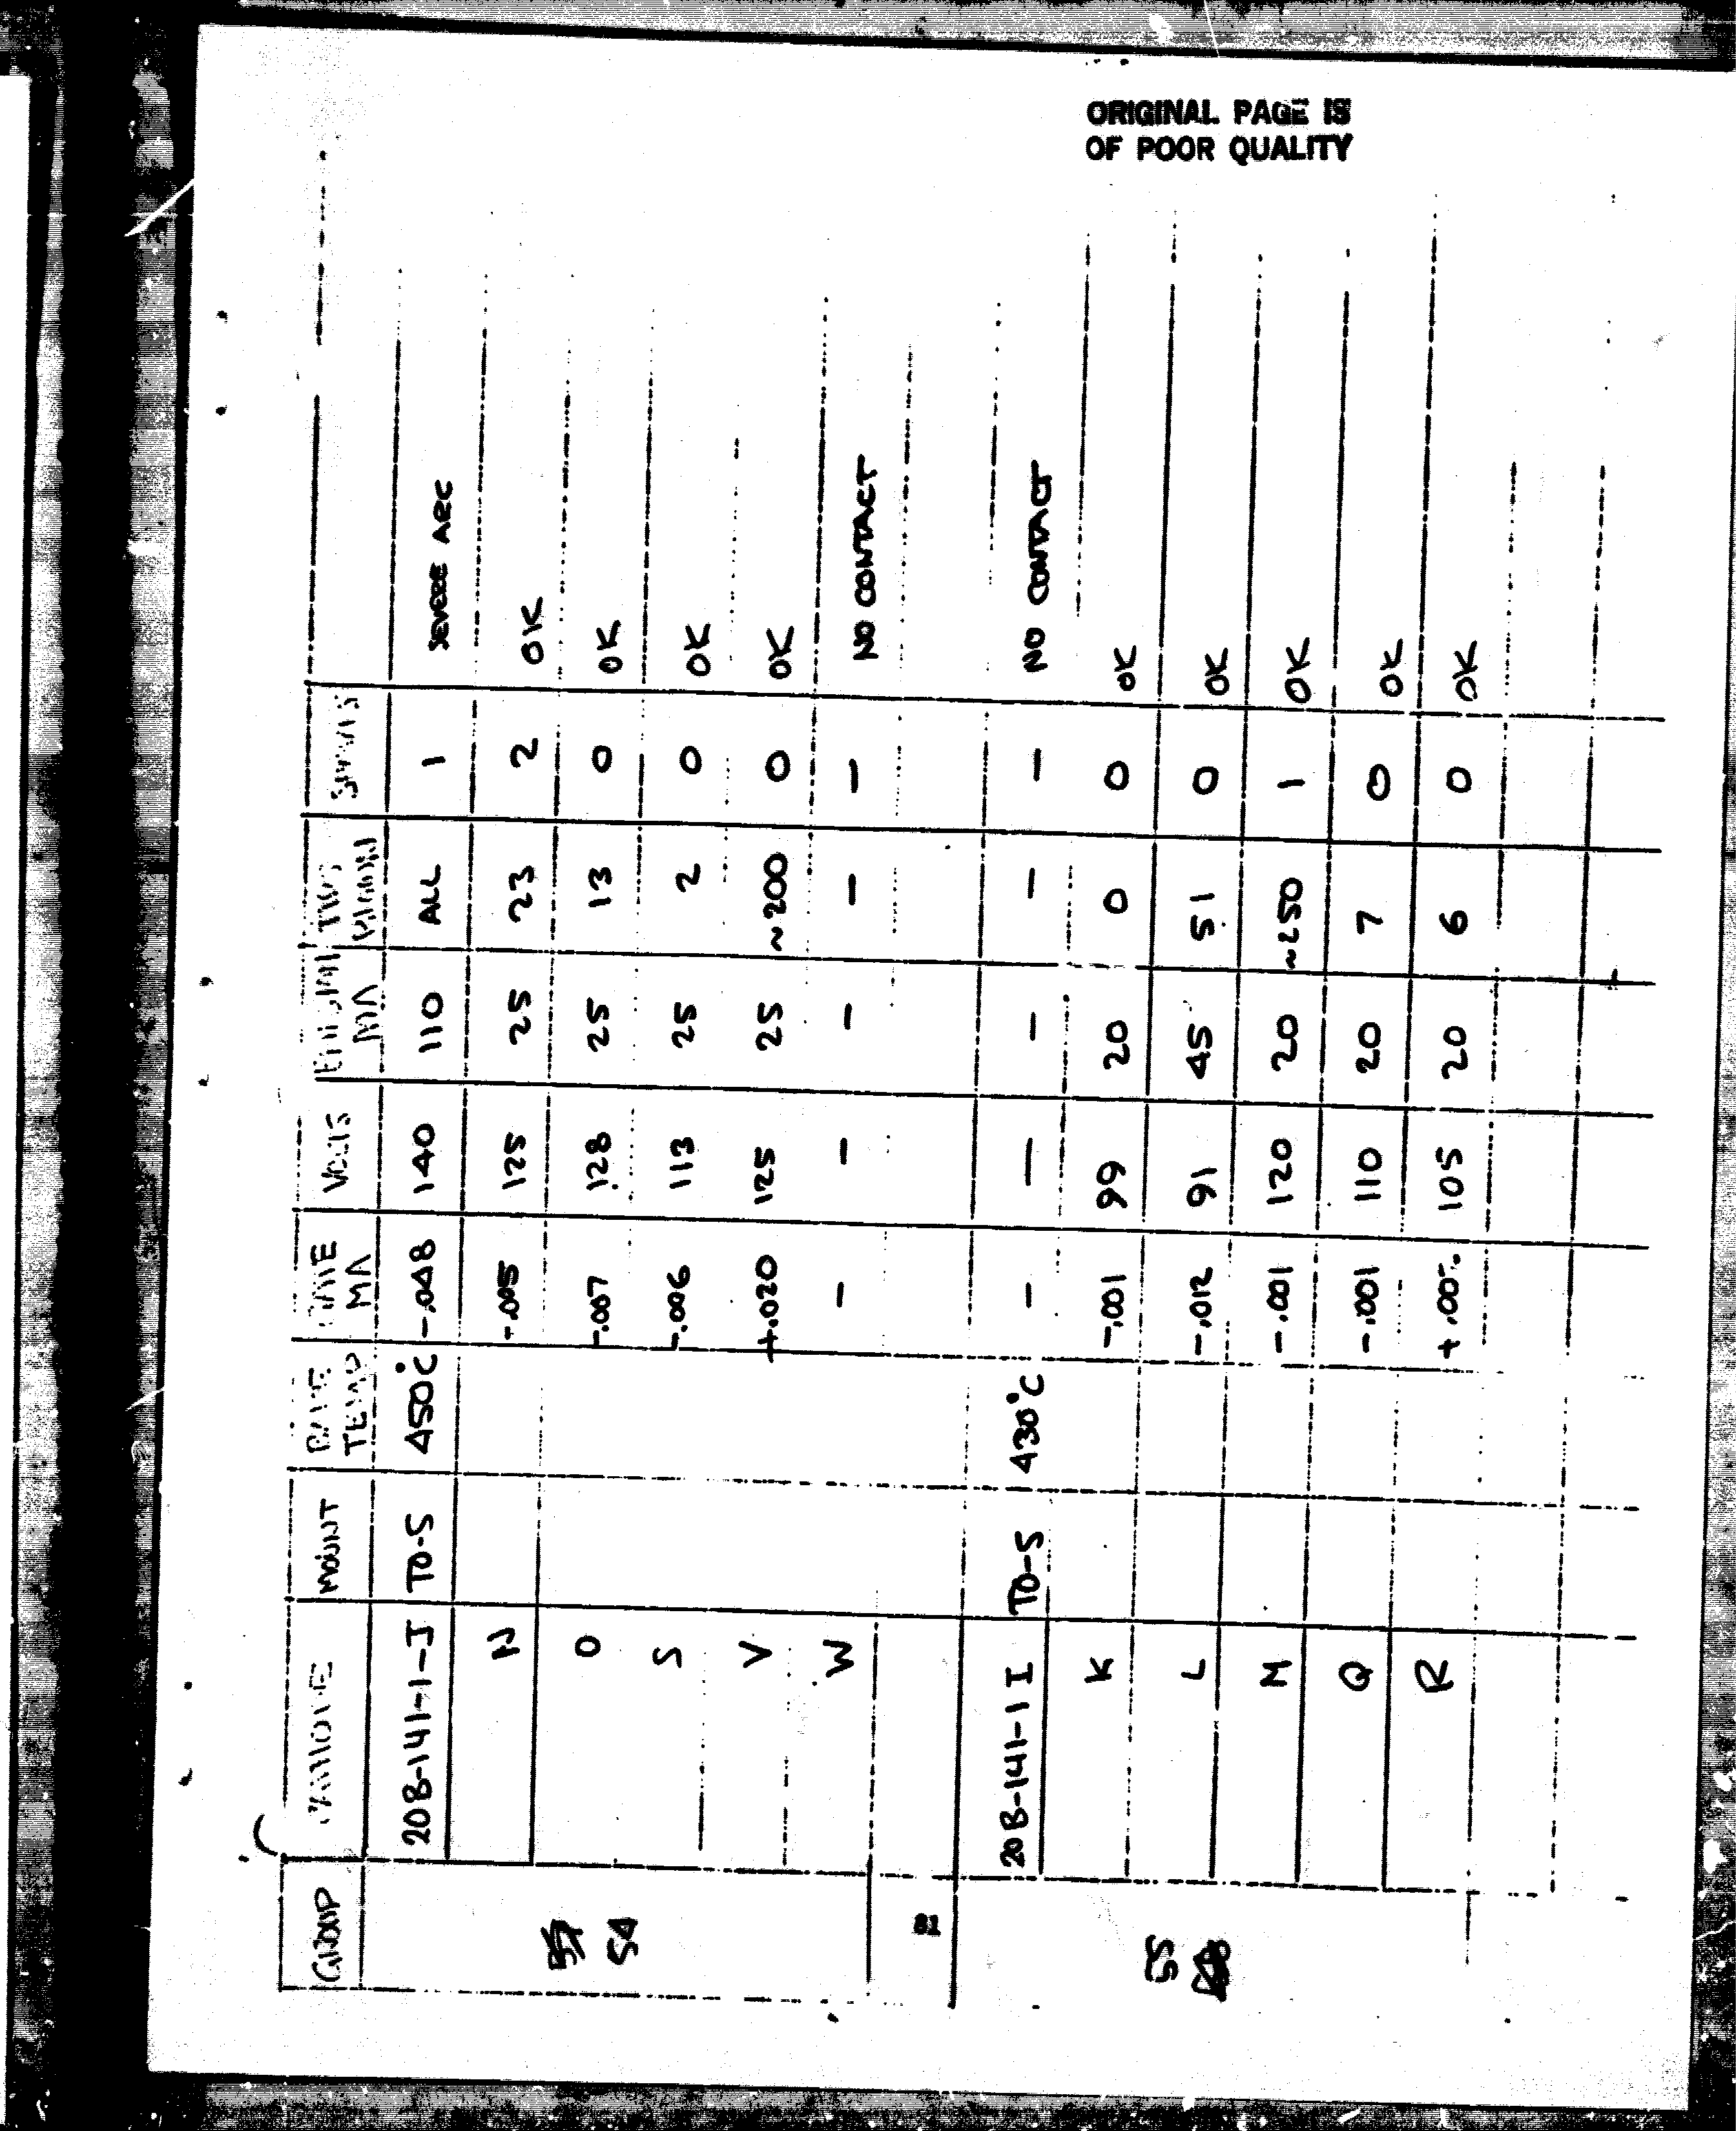 ORIGINAL PAGE IS
OF POOR QUALITY
GROUP MOUNT TEMP MA VOLTS MA
208-141-1-J TO-5 450°C -.048 140 110 ALL 1 SEVERE ARC
N -.005 125 25 23 2 OK
O -.007 128 25 13 0 OK
54 S -.006 113 25 2 0 OK
V +.020 125 25 ~200 0 OK
W - - - - - NO CONTACT
81
208-141-1 I TO-5 430°C - - - - - NO CONTACT
K -.001 99 20 0 0 OK
55 L -.012 91 45 51 0 OK
M -.001 120 20 ~250 1 OK
Q -.001 110 20 7 0 OK
R 105 20 6 0 OK